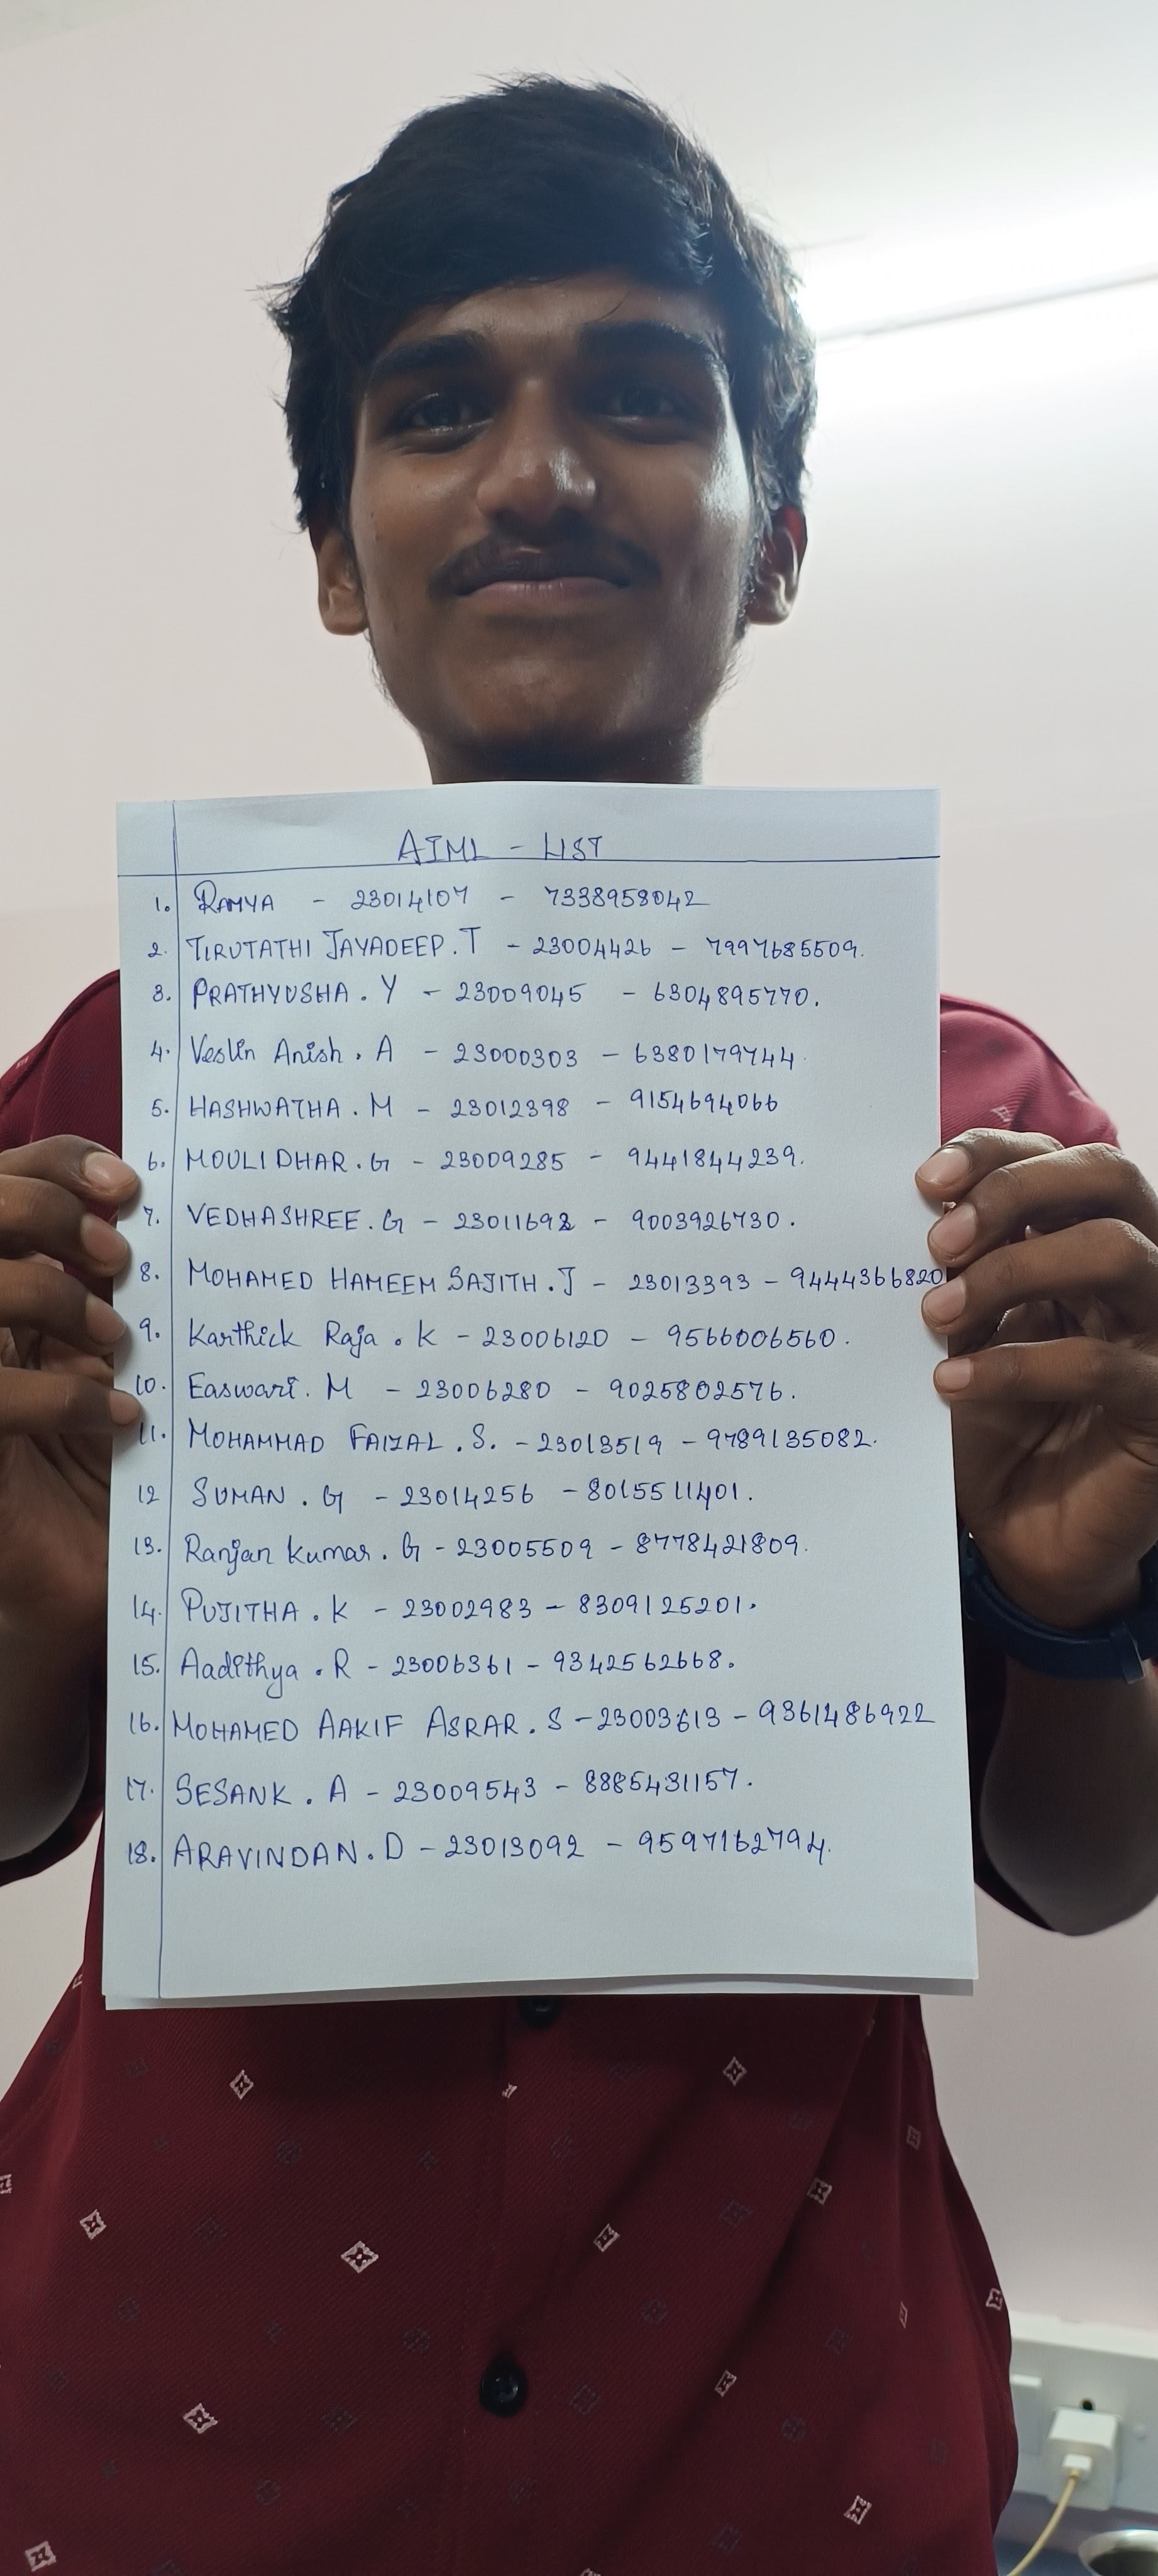 AIML - LIST
1. RAMYA - 23014107 - 7338958042
2. TIRUTATHI JAYADEEP.T - 23004426 - 7997685509.
3. PRATHYUSHA. Y - 23009045 - 6304895770.
4. Veslin Anish. A - 23000303 - 6380179744
5. HASHWATHA. M - 23012398 - 9154694066
6. MOULIDHAR. G - 23009285 - 9441844239.
7. VEDHASHREE. G - 23011692 - 9003926730.
8. MOHAMED HAMEEM SAJITH. J - 23013393 - 9444366820
9. Karthick Raja. K - 23006120 - 9566006560.
10. Easwari. M - 23006280 - 9025802576.
11. MOHAMMAD FAIZAL. S. - 23013519 - 9789135082.
12 SUMAN. G - 23014256 - 8015511401.
13. Ranjan kumar. G - 23005509 - 8778421809.
14. PUJITHA. K - 23002983 - 8309125201.
15. Aadithya. R - 23006361 - 9342562668.
16. MOHAMED AAKIF ASRAR. S - 23003613 - 9361486922
17. SESANK. A - 23009543 - 8885431157.
18. ARAVINDAN. D - 23013092 - 9597162794.